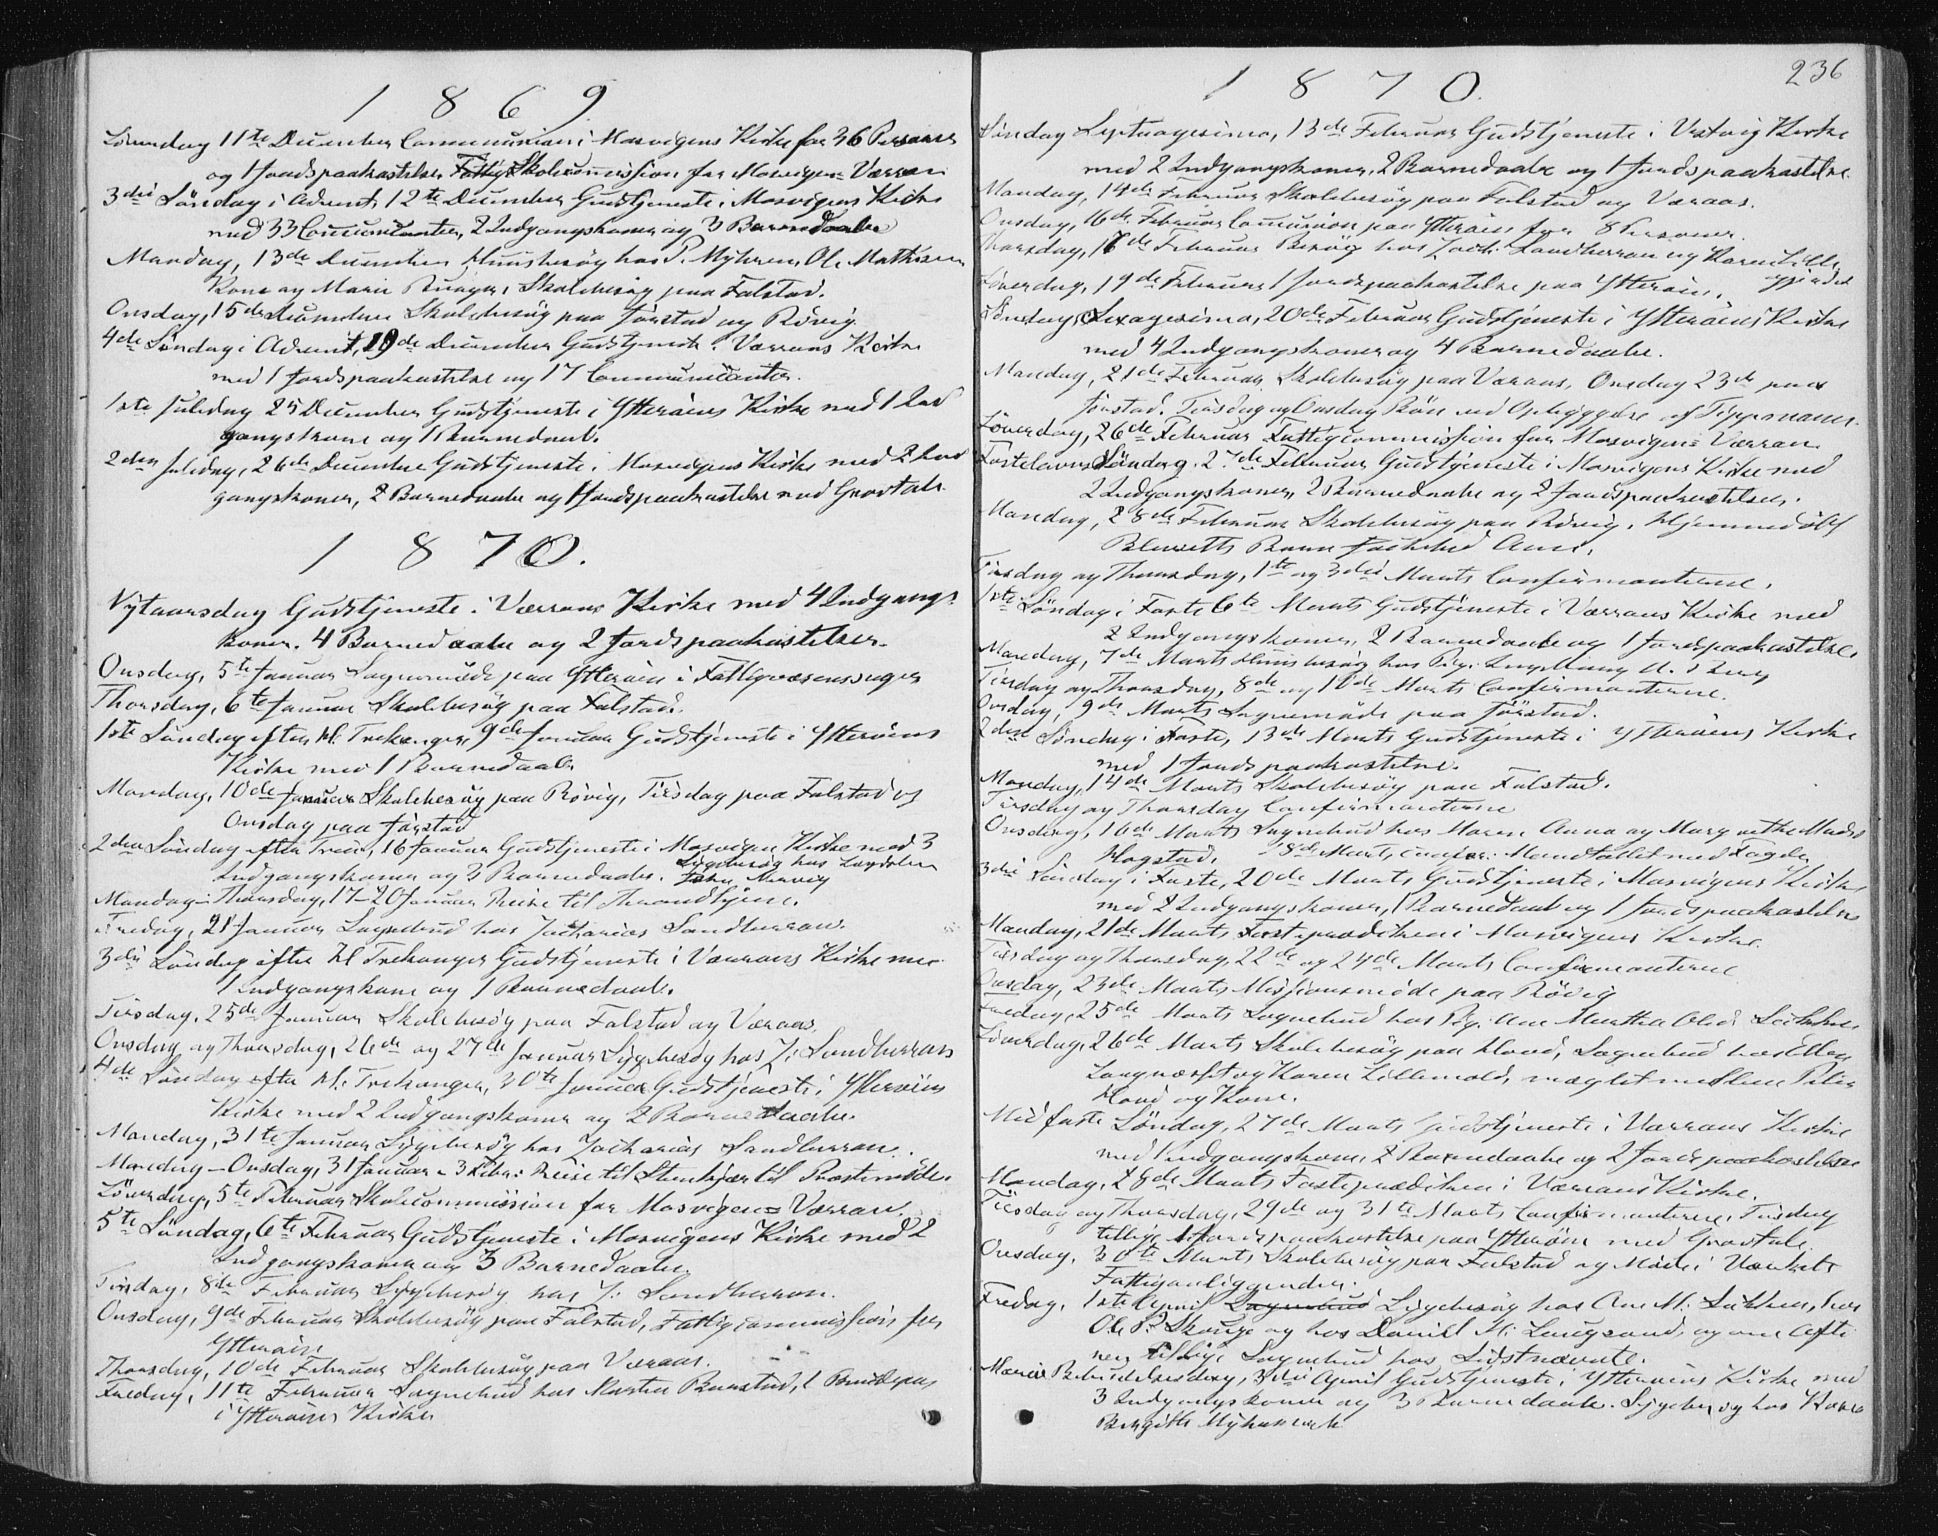 1869.
Løverdag 11te December Communion i Mosvigens Kirke for 36 Personer
og 1 Jordspaakastelse. Skolecommission for Mosvigen-Værran
3die Søndag i Advent, 12te December Gudstjeneste i Mosvigens Kirke
med 33 Communicanter, 2 Indgangskoner og 3 Barnedaabe
Mandag, 13de December Huusbesøg hos P. Myhren, Ole Mathisen
Kone og Marie, Skolebesøg paa Falstad.
Onsdag, 15de December Skolebesøg paa Jørstad og Røvig.
4de Søndag i Advent, 19de December Gudstjeneste i Værrans Kirke
med 1 Jordspaakastelse og 17 Communicanter.
1ste Juledag 25 December Gudstjeneste i Ytterøens Kirke med 1 Ind
gangskone og 1 Barnedaab.
2den Juledag, 26de December Gudstjeneste i Mosvigens Kirke med 2 Ind
gangskoner, 2 Barnedaabe og 1 Jordspaakastelse med Gravtale.
1870.
Nytaarsdag Gudstjeneste i Værrans Kirke med 4 Indgangs-
koner. 4 Barnedaabe og 2 Jordspaakastelser.
Onsdag, 5te Januar Sognemøde paa Ytterøen i Fattigvæsenssager
Thorsdag, 6te Januar Skolebesøg paa Falstad.
1ste Søndag efter Hl. Trekonger, 9de Januar Gudstjeneste i Ytterøens
Kirke med 1 Barnedaab.
Mandag, 10de Januar Skolebesøg paa Røvig, Tirsdag paa Falstad og
Onsdag paa Jørstad
2den Søndag efter Treko, 16 Januar Gudstjeneste i Mosvigen Kirke med 3
Indgangskoner og 3 Barnedaabe. Sygebesøg hos
John Mosvig
Mandag-Thorsdag, 17-20 Januar Reise til Throndhjem.
Fredag, 21 Januar Sognebud hos Zacharias Sandburran.
3die Søndag efter Hl Trekonger Gudstjeneste i Værrans Kirke med
1 Indgangskone og 1 Barnedaab.
Tirsdag, 25de Januar Skolebesøg paa Falstad og Væraas.
Onsdag og Thorsdag, 26de og 27de Januar Sygebesøg hos Z. Sandburran
4de Søndag efter Hl. Trekonger, 30te Januar Gudstjeneste i Ytterøens
Kirke med 2 Indgangskoner og 2 Barnedaabe.
Mandag, 31te Januar Sygebesøg hos Zacharias Sandburran.
Mandag-Onsdag, 31 Januar-3 Febr: Reise til Stenkjær til Præstemøde.
Løverdag, 5te Februar Skolecommission for Mosvigen-Værran.
5te Søndag, 6te Februar Gudstjeneste i Mosvigens Kirke med 2
Indgangskoner og 3 Barnedaabe.
Tirsdag, 8de Februar Sygebesøg hos Z. Sandburran.
Onsdag, 9de Februar Skolebesøg paa Falstad, Fattigcommission for
Ytterøen
Thorsdag, 10de Februar Skolebesøg paa Væraas.
Fredag, 11te Februar Sognebud hos Martha, 1 Brudepar
i Ytterøens Kirke
236
1870.
Søndag Septuagesima, 13de Februar Gudstjeneste i Vestvig Kirke
med 2 Indgangskoner, 2 Barnedaabe og 1 Jordspaakastelse.
Mandag, 14de Februar Skolebesøg paa Falstad og Væraas.
Onsdag, 16de Februar Communion paa Ytterøen for 8 Personer.
Thorsdag, 17de Februar Besøg hos Zach: Sandburran og Karen Lille
Løverdag, 19de Februar 1 Jordspaakastelse paa Ytterøen.
Søndag Sexagesima, 20de Februar Gudstjeneste i Ytterøens Kirke
med 4 Indgangskoner og 4 Barnedaabe.
Mandag, 21de Februar Skolebesøg paa Væraas, Onsdag 23de paa
Jørstad. Tirsdag og Onsdag Bøn ved Ophyggelse af
Løverdag, 26de Februar Fattigcommission for Mosvigen-Værran.
Fastelavns Søndag, 27de Februar Gudstjeneste i Mosvigens Kirke med
2 Indgangskoner, 2 Barnedaabe og 2 Jordspaakastelser.
Mandag, 28de Februar Skolebesøg paa Røvig. Hjemmedøbt
Barn
Tirsdag og Thorsdag, 1te og 3die Marts Confirmanterne.
1ste Søndag i Faste 6te Marts Gudstjeneste i Værrans Kirke med
2 Indgangskoner, 2 Barnedaabe og 1 Jordspaakastelse
Mandag, 7de Marts Huusbesøg hos Pig.
Tirsdag og Thorsdag, 8de og 10de Marts Confirmanterne.
Onsdag, 9de Marts Sognemøde paa Jørstad.
2den Søndag i Faste, 13de Marts Gudstjeneste i Ytterøens Kirke
med 1 Jordspaakastelse.
Mandag, 14de Marts Skolebesøg paa Falstad.
Tirsdag og Thorsdag Confirmanterne
Onsdag, 16de Marts Sognebud hos Maren Anna og Margrethe Mads
Hogstad. 18de Marts Mandtallet med Fogden
3die Søndag i Faste, 20de Marts Gudstjeneste i Mosvigens Kirke
med 2 Indgangskoner, 1 Barnedaab og 1 Jordspaakastelse
Mandag, 21de Marts Fasteprædiken i Mosvigens Kirke.
Tirsdag og Thorsdag, 22de og 24de Marts Confirmanterne
Onsdag, 23de Marts Missionsmøde paa Røvig
Fredag, 25de Marts Sognebud hos Pig. Ane Martha Olsd.
Løverdag, 26de Marts Skolebesøg paa Hovd, Sognebud hos Ellen
og Karen Lillemold, mæglet mellem Peter
Hovd og Kone.
Midfaste Søndag, 27de Marts Gudstjeneste i Værrans Kirke
med 1 Indgangskone 2 Barnedaabe og 2 Jordspaakastelser
Mandag, 28de Marts Fasteprædiken i Værrans Kirke.
Tirsdag og Thorsdag, 29de og 31te Marts Confirmanterne. Tirsdag
tillige 1 Jordspaakastelse paa Ytterøen med Gravtale.
Onsdag, 30te Marts Skolebesøg paa Falstad og Møde i
Fattiganliggender.
Fredag, 1ste April Sygebesøg hos Ane M., hos
Ole P. Skauge og hos Daniel M. Langsand, og om Efte
nen tillige Sognebud hos Sidstnævnte.
Mariæ Bebudelsesdag, 3die April Gudstjeneste i Ytterøens Kirke med
3 Indgangskoner og 3 Barnedaabe. Sygebesøg hos
Birgitte